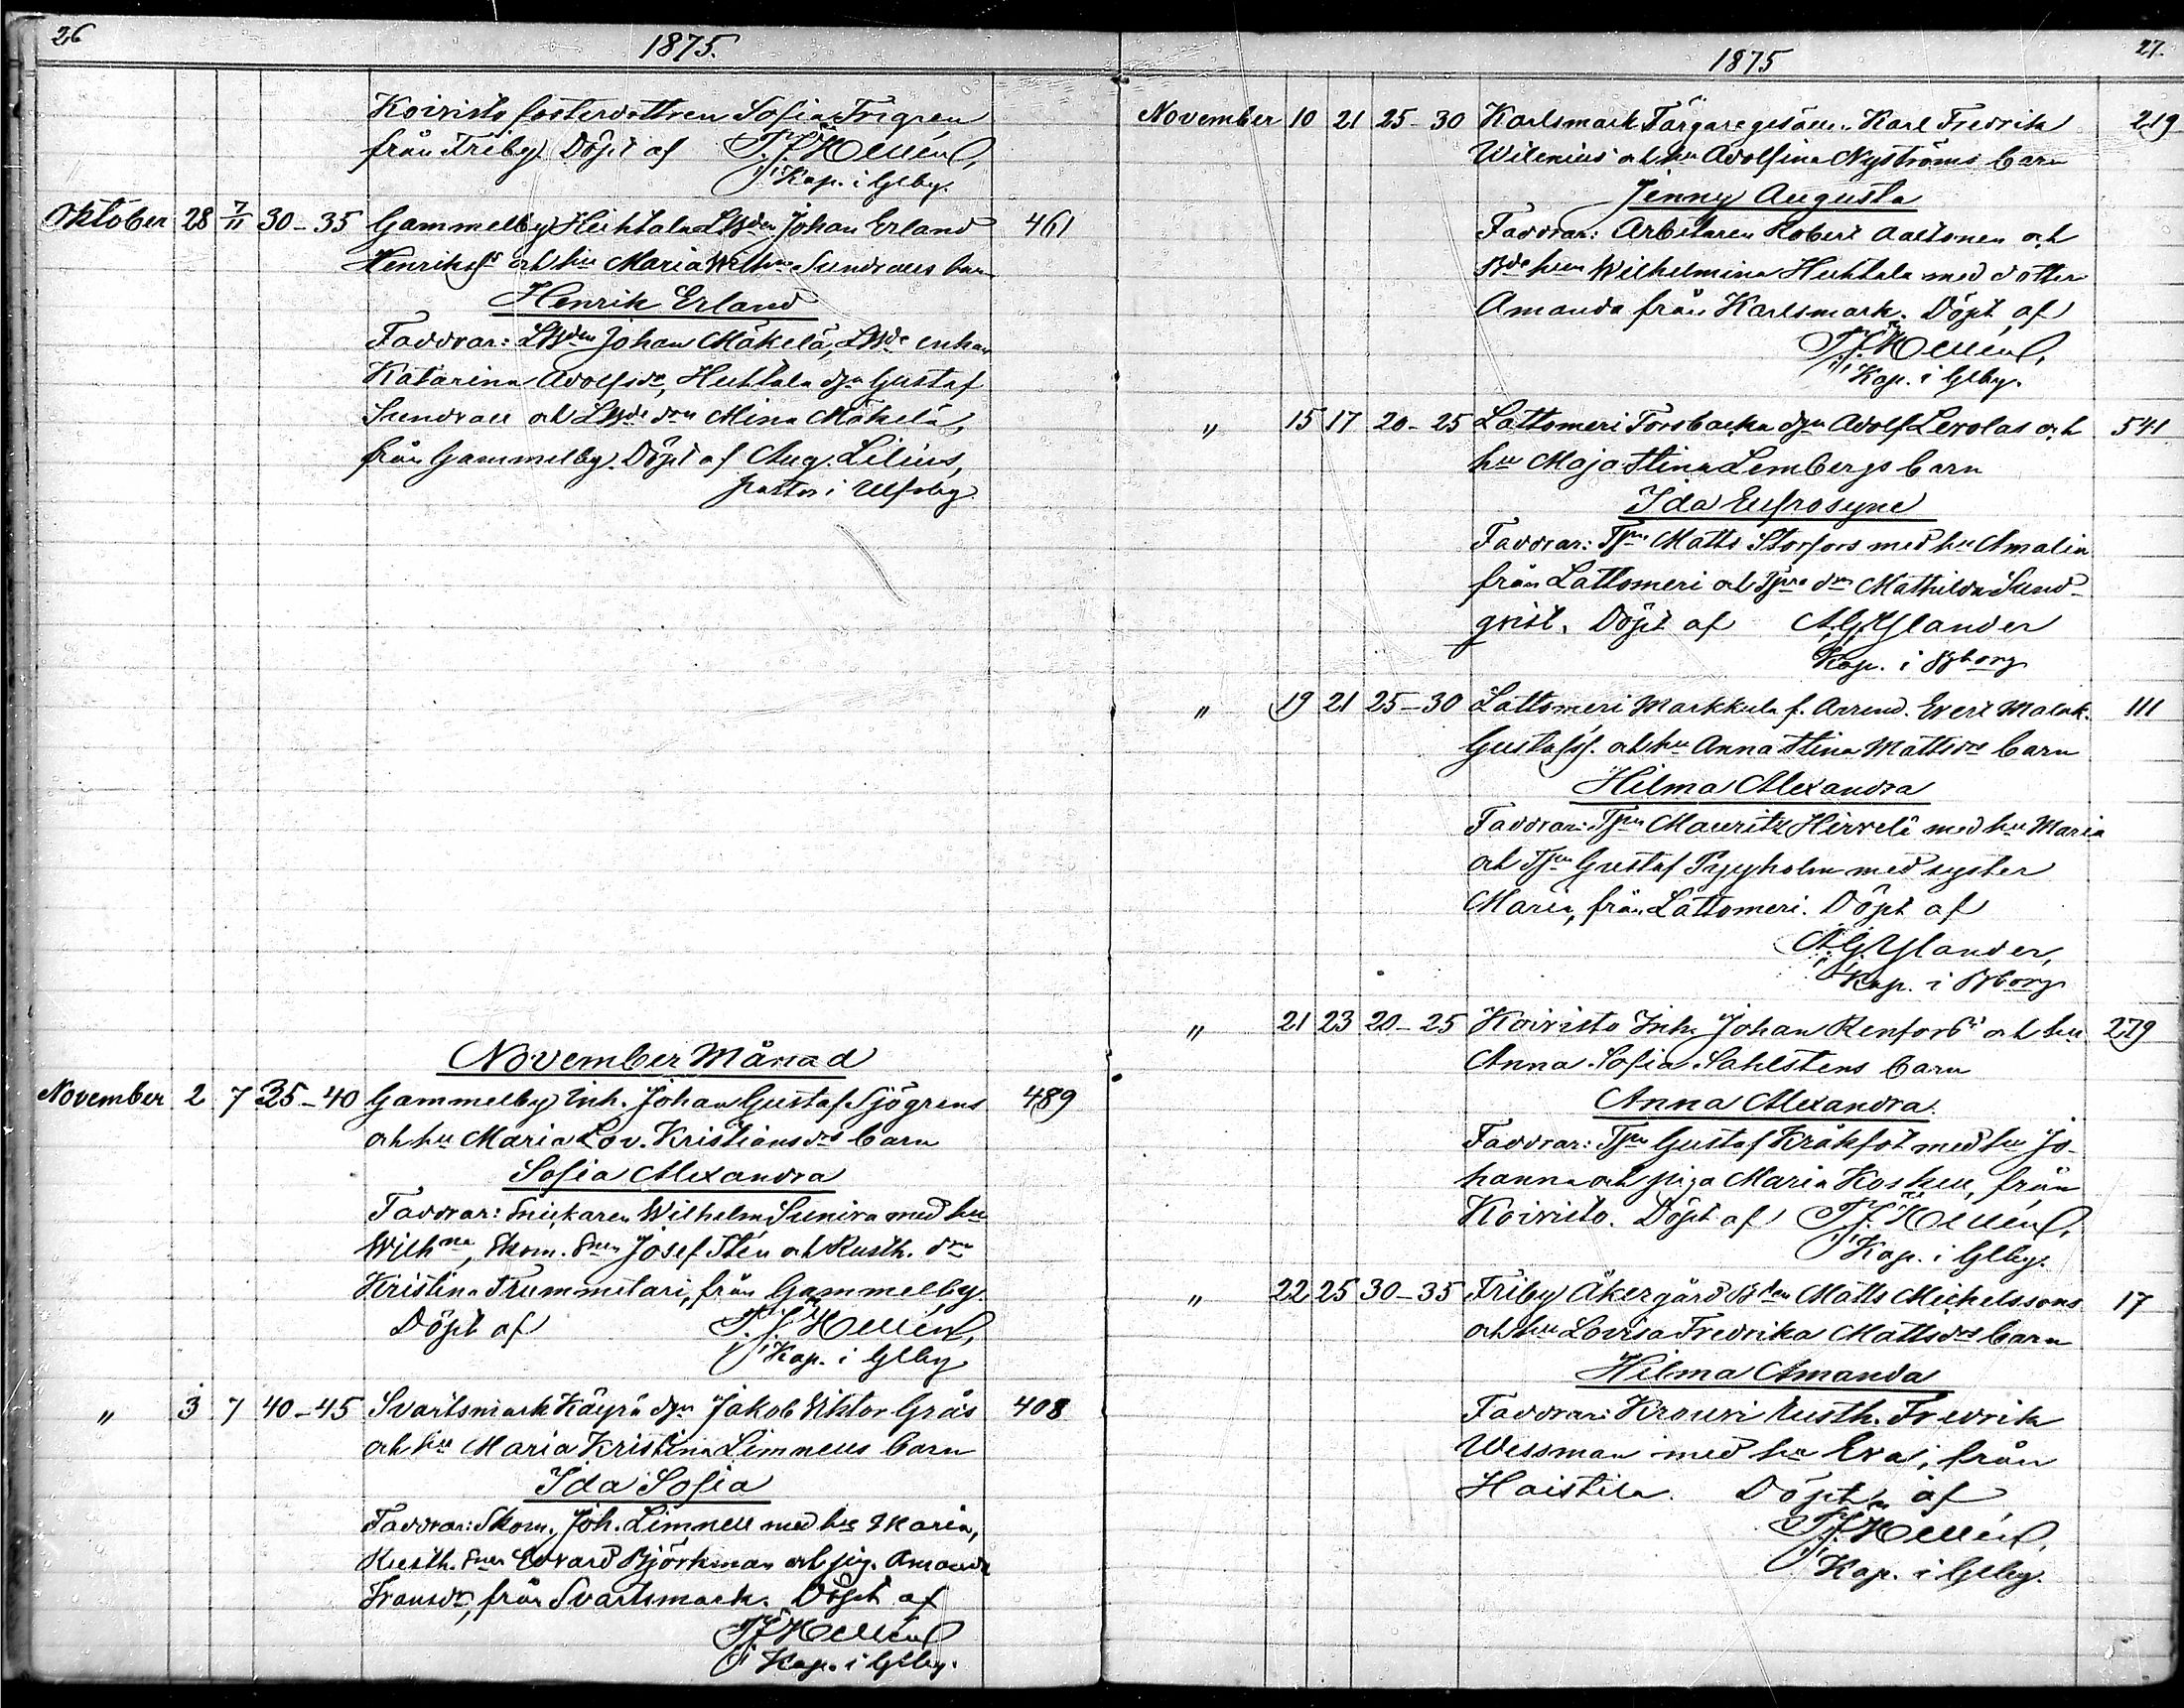 26
1875.
Koivisto fosterdottren Sofia Frigren
från Friby. Döpt af
Kap. i Glby.
Oktober 28 7/11 30-35 Gammelby Huhtala LBden Johan Erland 461
Henrikss och hu Maria Wilhna Sundvalls barn
Henrik Erland
Faddrar: LBden Johan Mäkelä, LBde enkan
Katarina Adolfsdr, Huhtala dgn Gustaf
Sundvall och LBde don Mina Mäkelä,
från Gammelby. Döpt af Aug. Lilius,
pastor i Ulfsby
November Månad
November 2 7 35-40 Gammelby Inh. Johan Gustaf Sjögrens 489
och hu Maria Lov. Kristiansdrs barn
Sofia Alexandra
Faddrar: Snickaren Wilhelm Sunira med hu
Wilhna, Skom. Snen Josef Stén och Rusth. don
Kristina Trummitari, från Gammelby.
Döpt af
Kap. i Glby
" 3 7 40-45 Svartsmark Käyrä dgn Jakob Viktor Grås 408
och hu Maria Kristina Limnells barn
Ida Sofia
Faddrar: Skom. Joh. Limnell med hu Maria,
Rusth. Snen Edvard Björkman och pig. Amanda
Fransdr, från Svartsmark. Döpt af
Kap. i Glby.
1875
27.
November 10 21 25-30 Karlsmark Färgaregesällen Karl Fredrik 219
Wilenius och hu Adolfina Nyströms barn
Jenny Augusta
Faddrar: Arbetaren Robert Aaltonen och
Bde hun Wilhelmina Huhtala med dotter
Amanda från Karlsmark. Döpt af
Kap. i Glby.
" 15 17 20-25 Lattomeri Forsbacka dgn Adolf Levolas och 541
hu Maja Stina Lembergs barn
Ida Eufrosyne
Faddrar: Tjn Matts Storfors med hu Amalia
från Lattomeri och don Mathilda Sund-
qvist. Döpt af A.G. Ylander
Kap. i Bborg
" 19 21 25-30 Lattomeri Markkula f. Arrend. Evert Malak. 111
Gustafss. och hu Anna Stina Mattsdrs barn
Hilma Alexandra
Faddrar: Mauritz Hirvelä med hu Maria
och Gustaf Pyyholm med syster
Maria, från Lattomeri. Döpt af
A.G. Ylander,
Kap. i Bborg
" 21 23 20-25 Koivisto Inh. Johan Renfors och hu 279
Anna Sofia Sahlstens barn
Anna Alexandra.
Faddrar: Gustaf Kråkfot med hu Jo-
hanna och piga Maria Koskell, från
Koivisto. Döpt af
Kap. i Glby.
" 22 25 30-35 Friby Åkergård Bden Matts Michelssons 17
och hu Lovisa Fredrika Mattsdrs barn
Hilma Amanda
Faddrar: Krouvi Rusth. Fredrik
Wessman med hu Eva, från
Haistila. Döpt af
Kap. i Glby.